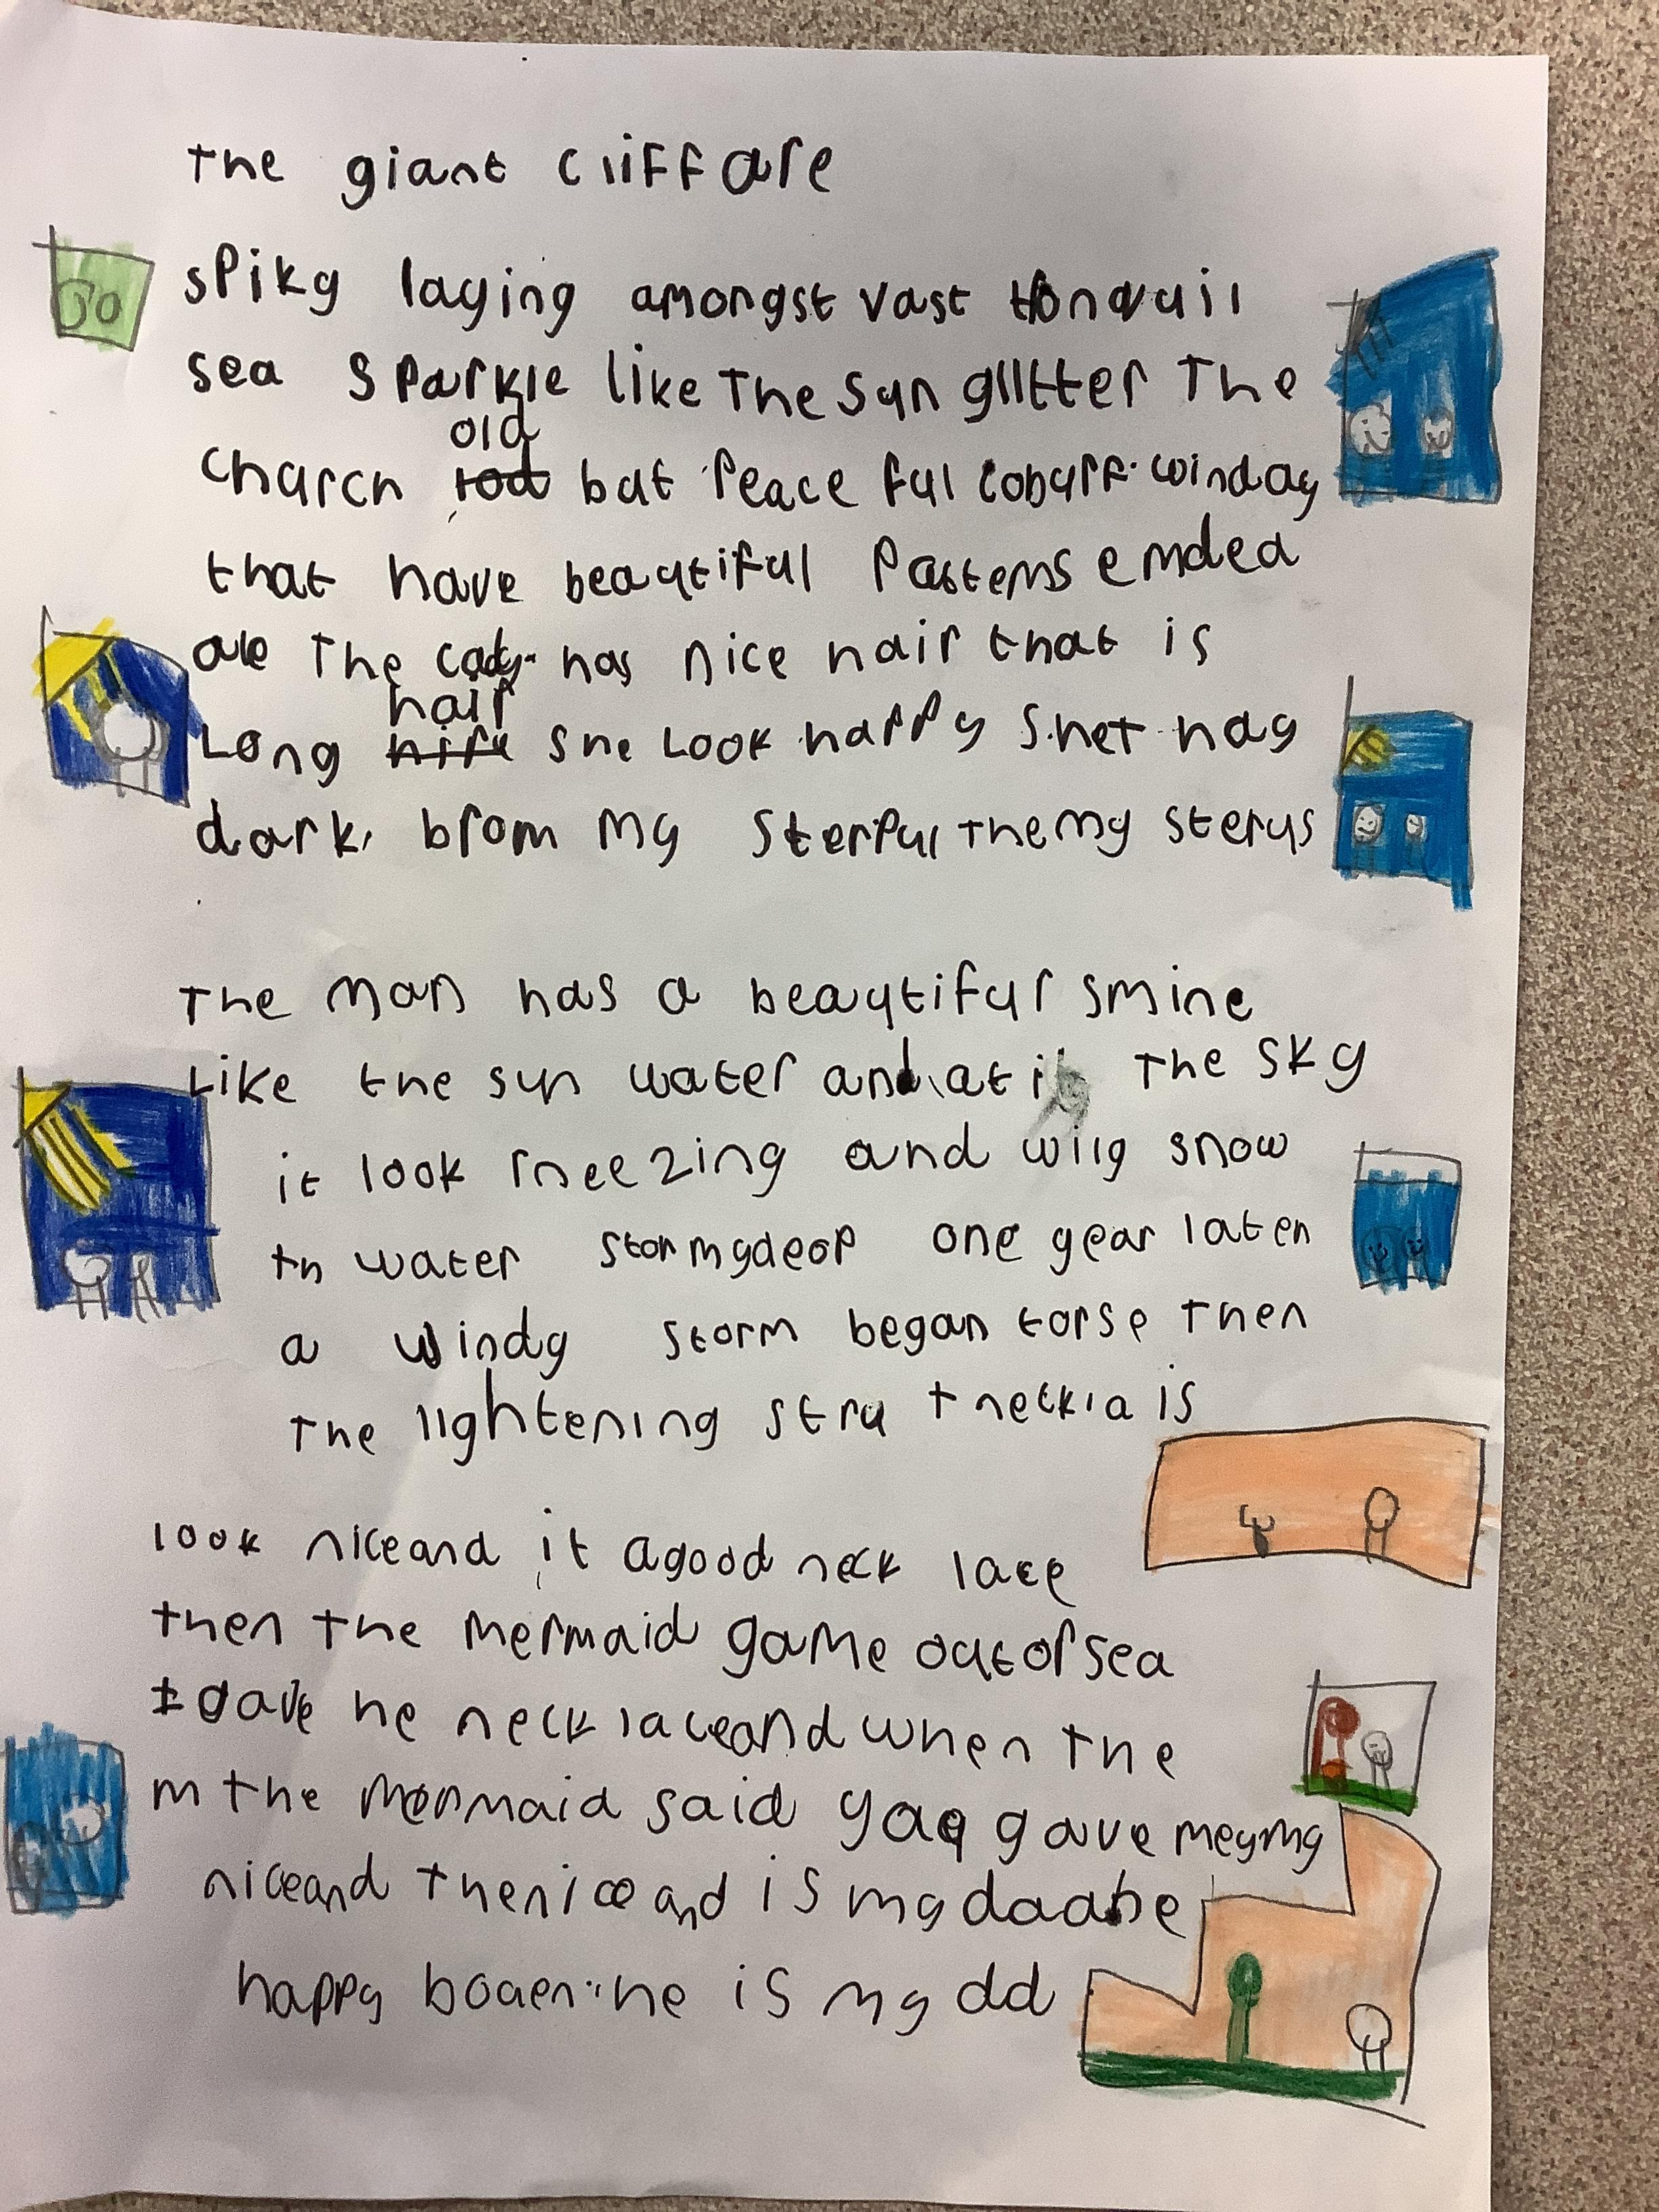 The giant cliff are
spiky laying amongst vast tonquil
sea sparkle like The sun glitter The
old
church but peace ful window
that have beautiful Patterns emded
are The lady has nice hair that is
hair
Long she Look happy She hay
dark, brom my sterful the my sterus
The man has a beautiful smine
Like the sun water and at it The sky
it look freezing and wily snow
in water stormy deep one year later
a windy storm began torse Then
The lightening stru The
look nice and it a good neck lace
then The mermaid game out of sea
I gave he neck lace and when The
m the mermaid said yau gave me my
nice and The nice and is my
happy is my dd